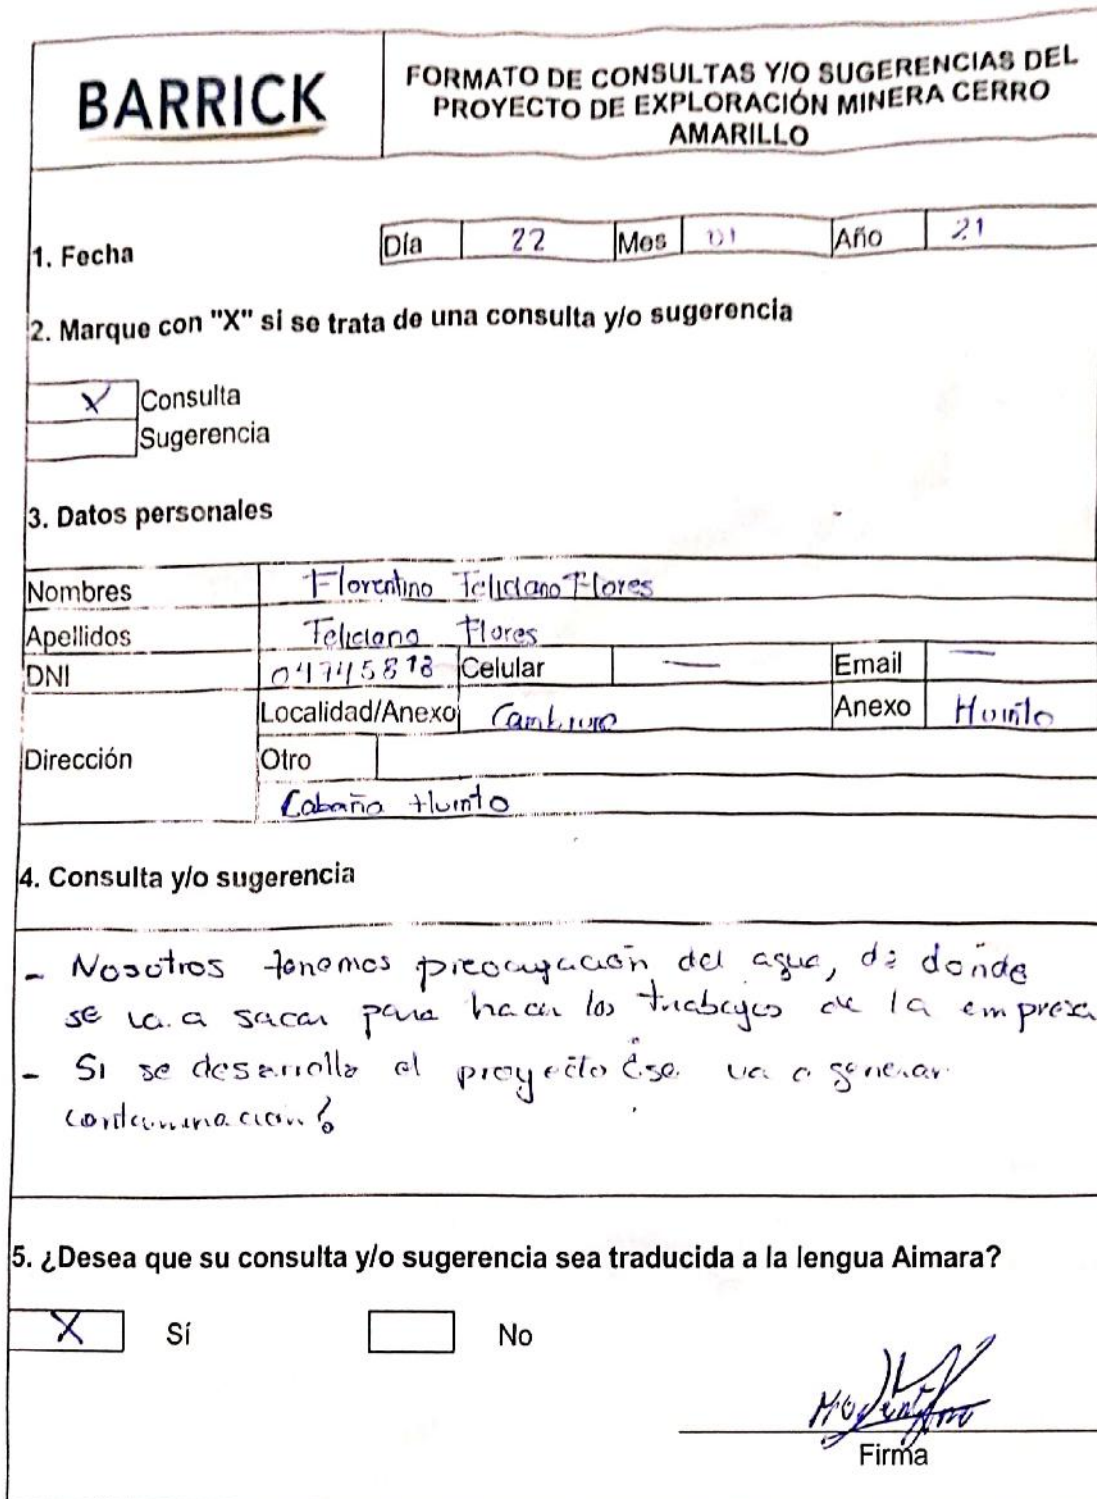 BARRICK
FORMATO DE CONSULTAS Y/O SUGERENCIAS DEL
PROYECTO DE EXPLORACIÓN MINERA CERRO
AMARILLO
1. Fecha
Día 22 Mes 01 Año 21
2. Marque con "X" si se trata de una consulta y/o sugerencia
X Consulta
Sugerencia
3. Datos personales
Nombres Florentino Feliciano Flores
Apellidos Feliciano Flores
DNI Celular — Email —
Localidad/Anexo Anexo
Dirección Otro
Cabaña
4. Consulta y/o sugerencia
- Nosotros tenemos preocupación del agua, de donde
se va a sacar para hacer los trabajos de la empresa
- Si se desarrolla el proyecto ¿se va a generar
contaminación?
5. ¿Desea que su consulta y/o sugerencia sea traducida a la lengua Aimara?
X Sí No
Firma